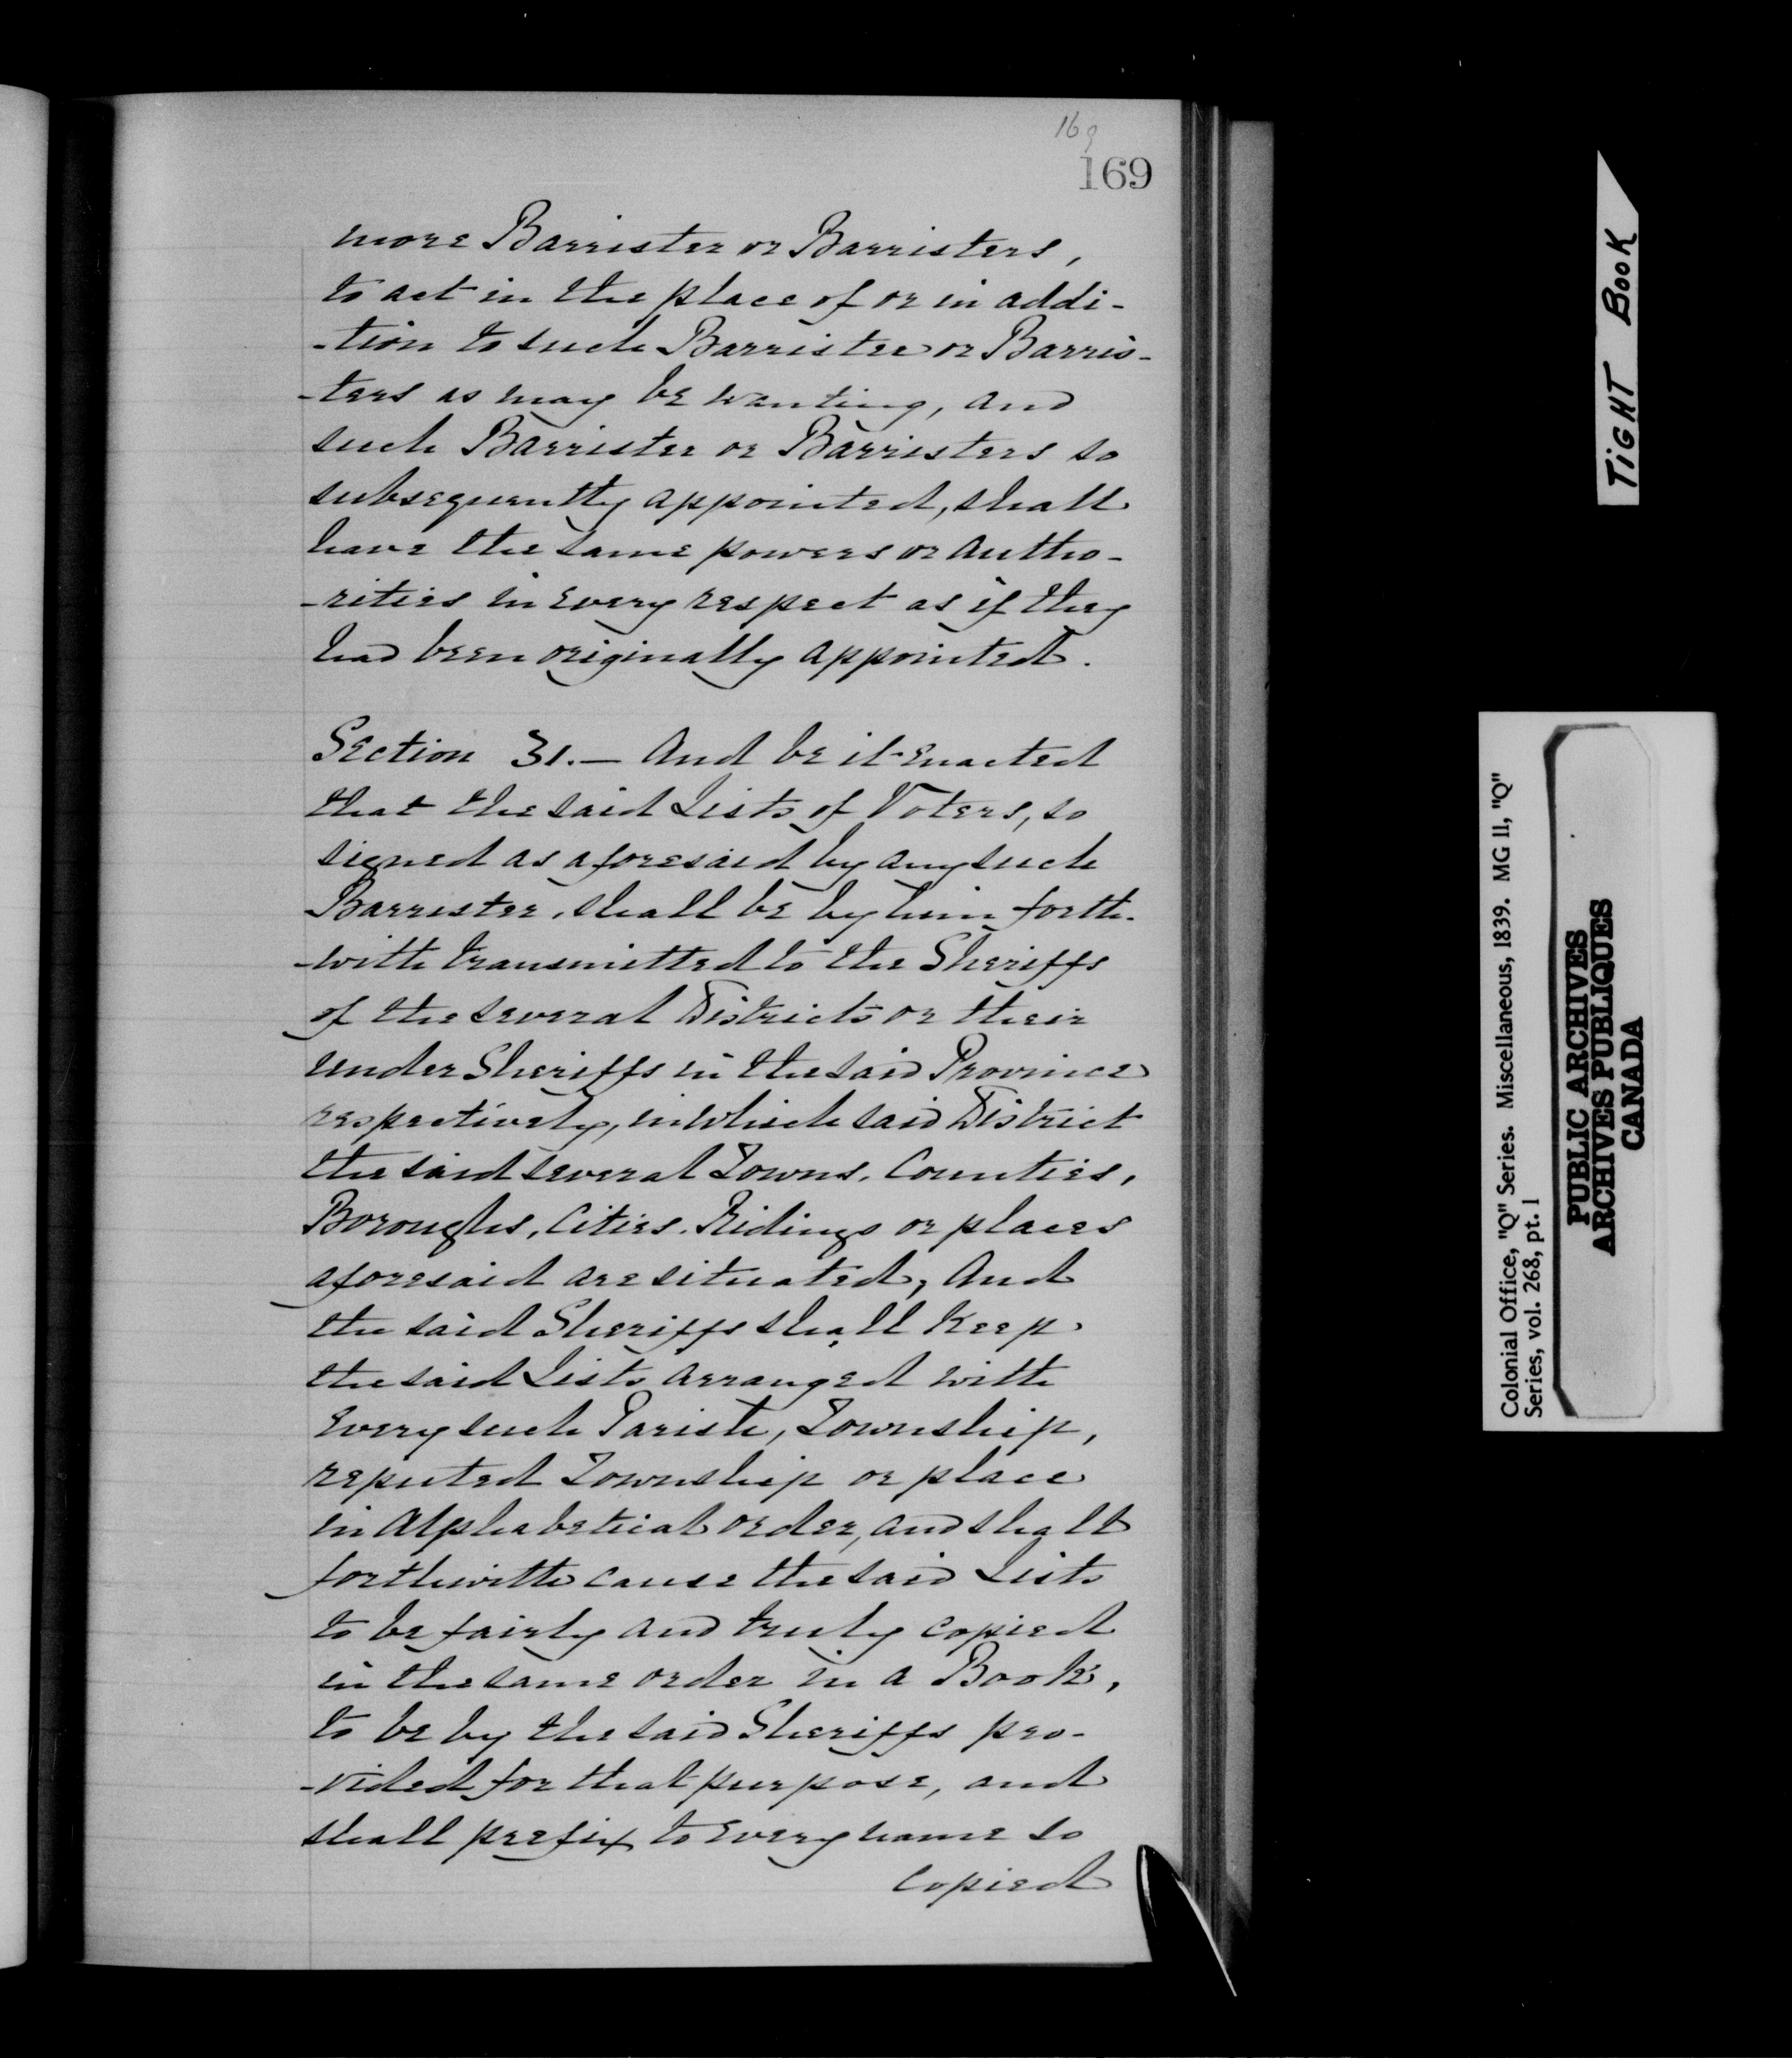 169
169
more Barrister or Barristers,
to act in the place of or in addi-
-tion to such Barrister or Barris-
-ters as may be wanting, and
such Barrister or Barristers so
subsequently appointed, shall
have the same powers or autho-
-rities in every respect as if they
had been originally appointed.
Section 31.— And be it enacted
that the said Lists of Voters, so
signed as aforesaid by any such
Barrister, shall be by him forth-
-with transmitted to the Sheriffs
of the several Districts or their
under Sheriffs in the said Province
respectively, in which said District
the said several Towns, Counties,
Boroughs, Cities, Ridings or places
aforesaid are situated; And
the said Sheriffs shall keep
the said Lists arranged with
every such Parish, Township,
reputed Township or place
in Alphabetical order, and shall
forthwith cause the said Lists
to be fairly and truly copied
in the same order in a Book,
to be by the said Sheriffs pro-
-vided for that purpose, and
shall prefix to every name so
copied
TIGHT BOOK
Colonial Office, "Q" Series. Miscellaneous, 1839. MG 11, "Q"
Series, vol. 268, pt. 1
PUBLIC ARCHIVES
ARCHIVES PUBLIQUES
CANADA